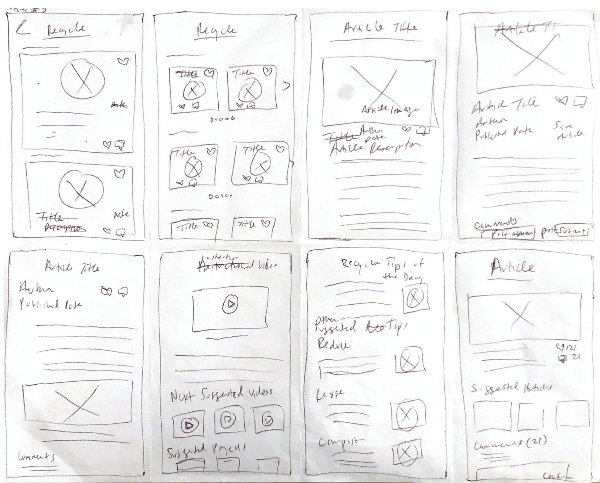 Recycle
Date
Date
Title
Recycle
Title
Title
Title
Title
Title
Title
Article Title
Article Image
Title
Author
Date
Article Description
Article Ti
Article Title
Author
Published Date
Save
Article
Comments
Post
Article Title
Author
Published Date
Comments
Instructional Video
Next Suggested Videos
Suggested Projects
Recycle Tips of
the Day
Other
Suggested Tips
Reduce
Reuse
Compost
Article
21
Suggested Articles
Comments (21)